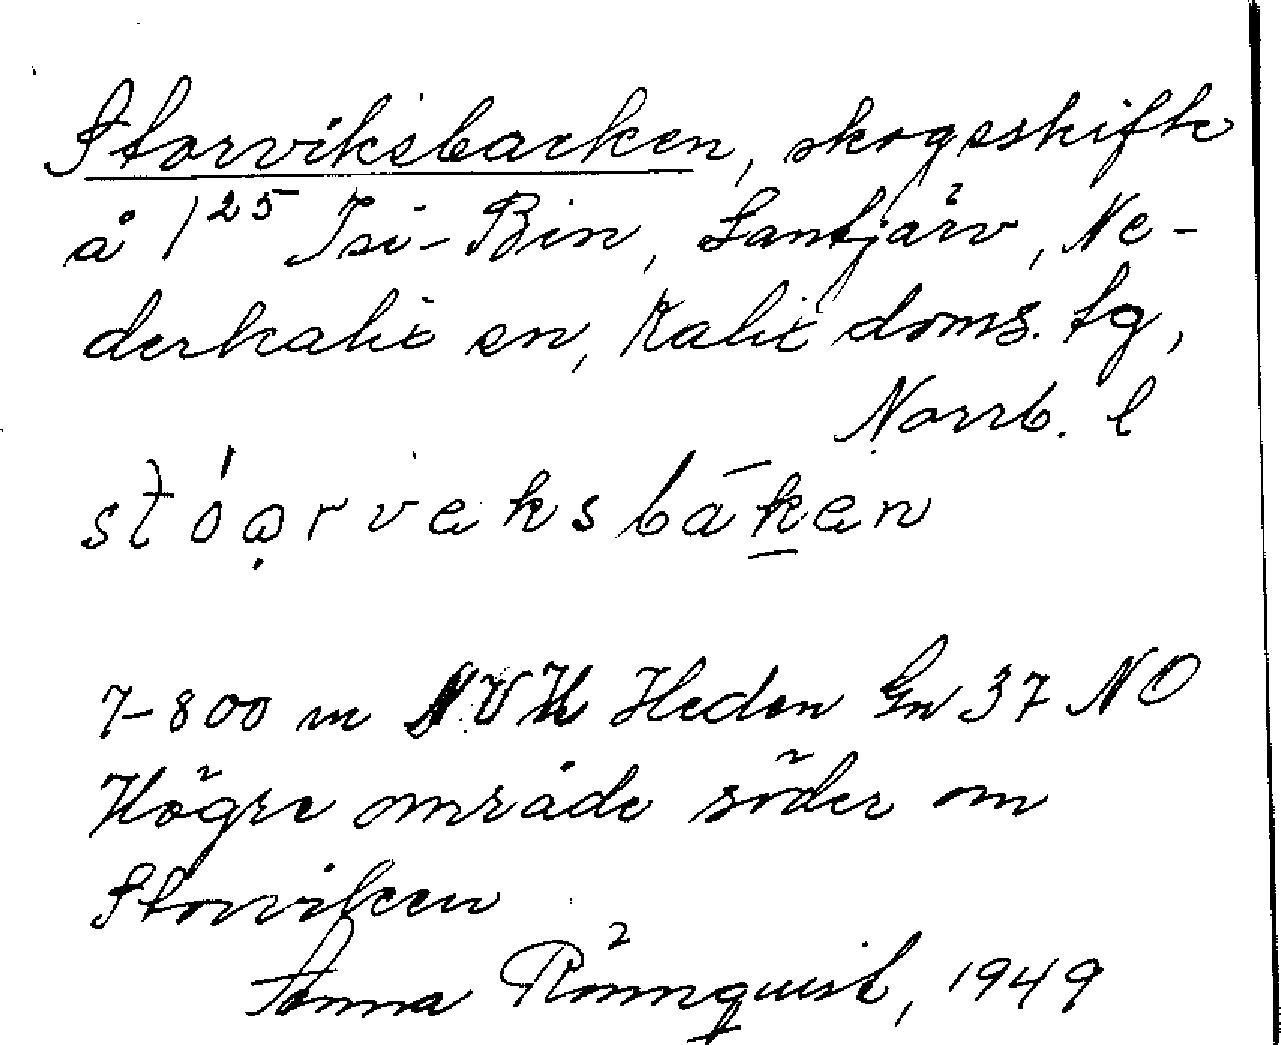 Storviksbacken, skogsskifte
å 1²⁵ Isi-Bin, Santjärv, Ne-
derkalix sn, Kalix doms. tg,
Norrb. l
stóǝrvǝksbākǝn
7-800 m NV Heden Gn 37 NO
Högre område söder om
Storviken
Anna Rönnquist, 1949